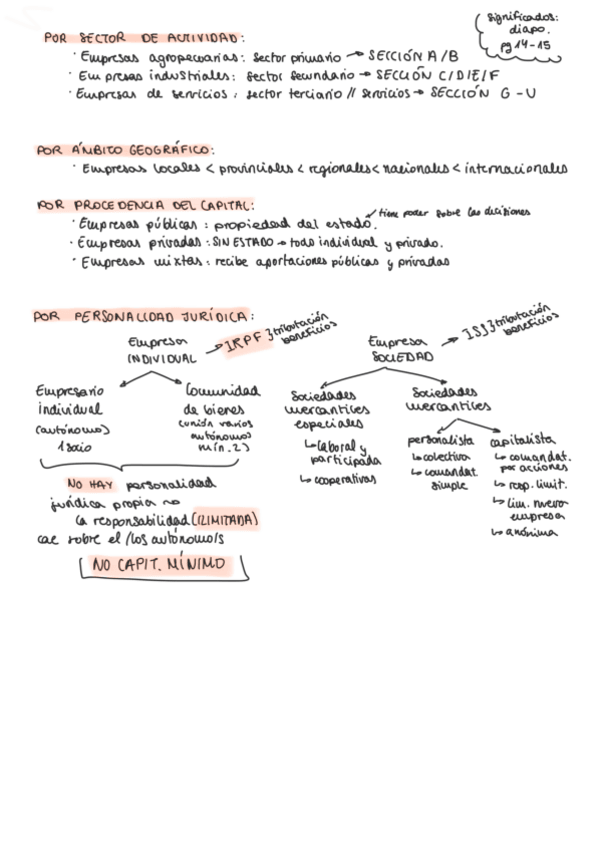 significados:
diapo.
pg 14-15
POR SECTOR DE ACTIVIDAD:
· Empresas agropecuarias: sector primario → SECCIÓN A/B
· Empresas industriales: sector secundario → SECCIÓN C/D/E/F
· Empresas de servicios: sector terciario // servicios → SECCIÓN G-U
POR ÁMBITO GEOGRÁFICO:
· Empresas locales < provinciales < regionales < nacionales < internacionales
POR PROCEDENCIA DEL CAPITAL:
tiene poder sobre las decisiones
· Empresas públicas: propiedad del estado.
· Empresas privadas: SIN ESTADO → todo individual y privado.
· Empresas mixtas: recibe aportaciones públicas y privadas
POR PERSONALIDAD JURÍDICA:
Empresa
INDIVIDUAL
→ IRPF } tributación
beneficios
Empresario
individual
(autónomo)
1 socio
Comunidad
de bienes
(unión varios
autónomos
mín. 2)
NO HAY personalidad
jurídica propia →
la responsabilidad (ILIMITADA)
cae sobre el/los autónomo/s
NO CAPIT. MÍNIMO
Empresa
SOCIEDAD
→ IS } tributación
beneficios
Sociedades
mercantiles
especiales
↳ laboral y
participada
↳ cooperativas
Sociedades
mercantiles
personalista
↳ colectiva
↳ comandat.
simple
capitalista
↳ comandat.
por acciones
↳ resp. limit.
↳ lim. nueva
empresa
↳ anónima